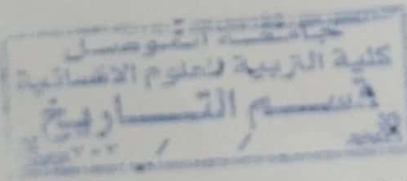 جامعة الموصل
كلية التربية للعلوم الانسانية
قسم التاريخ